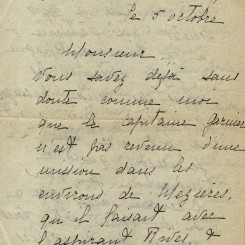 le 5 octobre
Monsieur
Vous savez déjà sans
doute comme moi
que le capitaine garnier
n'est pas revenu d'une
mission dans les
environs de Mézières,
qu'il faisait avec
l'aspirant